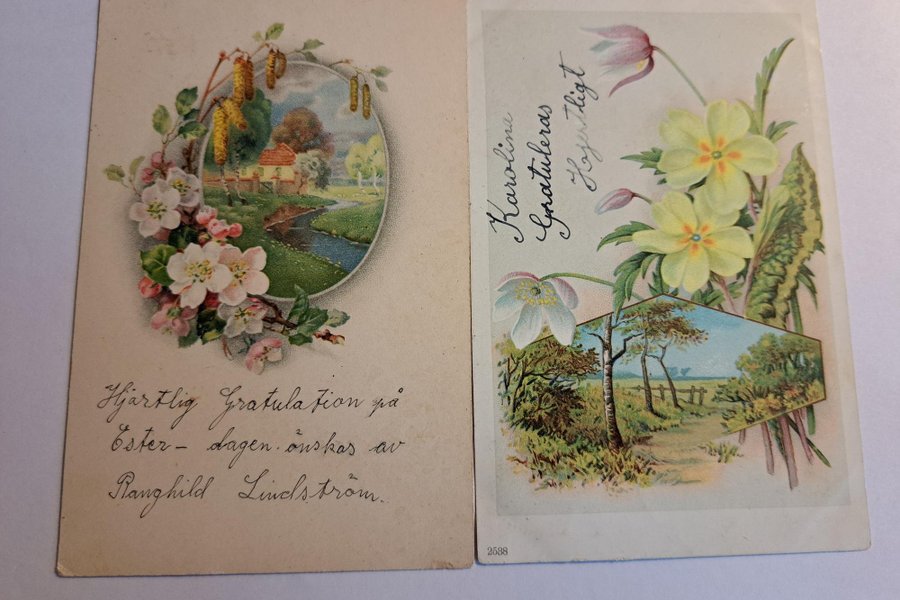 Hjärtlig Gratulation på
Ester- dagen önskas av
Ranghild Lindström.
Karolina
Gratuleras
Hojertligt
2538